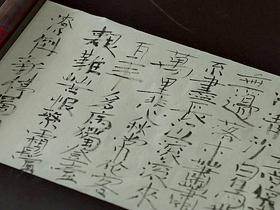 清沙白鳥
無邊落木蕭蕭
不盡長江滾滾來
萬里悲秋常作客
百年多病獨登臺
艱難苦恨繁霜鬢
潦倒新停濁